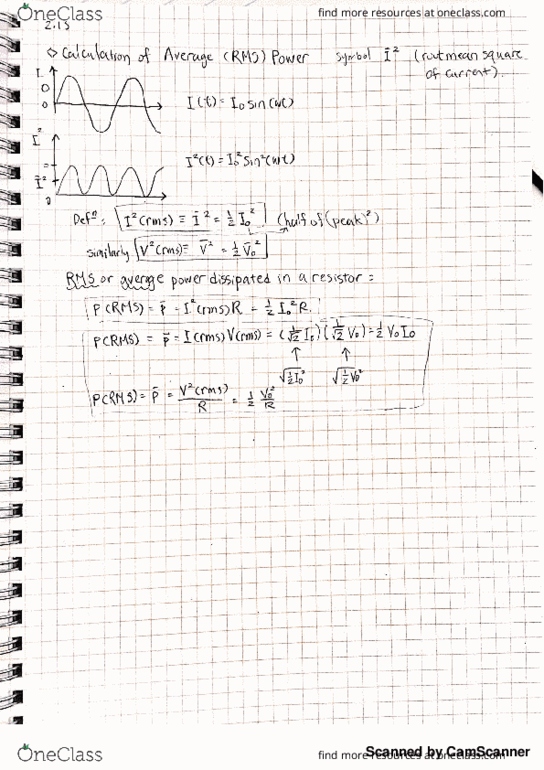 OneClass
find more resources at oneclass.com
2.15
◇ Calculation of Average (RMS) Power symbol Ī² (root mean square
of current).
I
I₀
0
I(t) = I₀ sin(ωt)
I²
I²(t) = I₀² sin²(ωt)
Ī²
0
Defⁿ: I²(rms) ≡ Ī² = ½ I₀² (half of (peak)²)
similarly V²(rms) ≡ V̄² = ½ V₀²
RMS or average power dissipated in a resistor:
P(RMS) = p̄ = I²(rms)R = ½ I₀² R
P(RMS) = p̄ = I(rms)V(rms) = (1/√2 I₀)(1/√2 V₀) = ½ V₀ I₀
↑ ↑
√½I₀² √½V₀²
P(RMS) = p̄ = V²(rms)/R = ½ V₀²/R
OneClass
find more resources at oneclass.com
Scanned by CamScanner